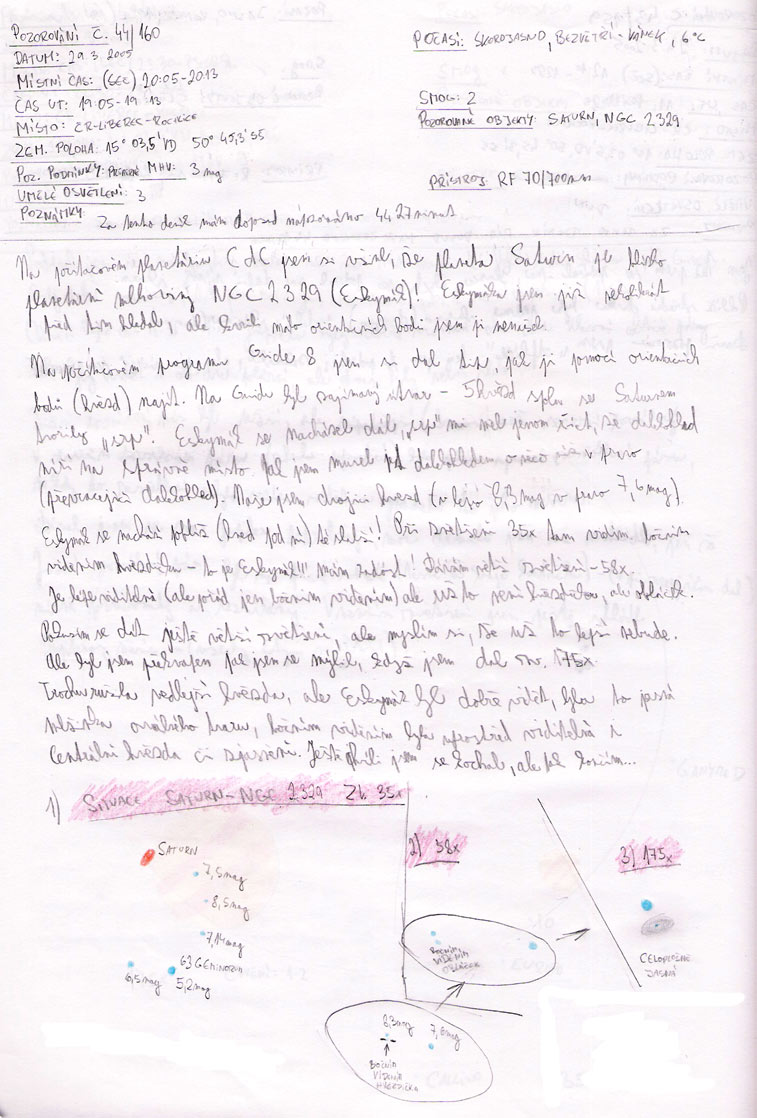 POZOROVÁNÍ Č. 44/160
DATUM: 29.3.2005
MÍSTNÍ ČAS: (SEČ) 20:05-20:13
ČAS UT: 19:05-19:13
MÍSTO: ČR-LIBEREC-ROCHLICE
ZEM. POLOHA: 15° 03,5' VD 50° 45,3' SS
POZ. PODMÍNKY: MHV: 3 mag
UMĚLÉ OSVĚTLENÍ: 3
POZNÁMKY: Za tento deník mám doposud napozorováno 4427 minut...
POČASÍ: SKOROJASNO, BEZVĚTŘÍ-VÁNEK, 6°C
SMOG: 2
POZOROVANÉ OBJEKTY: SATURN, NGC 2329
PŘÍSTROJ: RF 70/700mm
Na počítačovém planetáriu CdC jsem si všiml, že planeta Saturn je blízko
planetární mlhoviny NGC 2329 (Eskymák)! Eskymáka jsem již několikrát
před tím hledal, ale kvůli málo orientačních bodů jsem ji nenašel.
Na počítačovém programu Guide 8 jsem si dal tip, jak ji pomocí orientačních
bodů (hvězd) najít. Na Guidu byl zajímavý útvar - 5 hvězd spolu se Saturnem
tvořily „srp“. Eskymák se nacházel dál, „srp“ mi měl jenom říct, že dalekohled
míří na správné místo. Pak jsem musel dalekohledem o něco více v pravo
(převracející dalekohled). Našel jsem dvojici hvězd (v levo 8,3 mag v pravo 7,6 mag).
Eskymák se nachází poblíž (hned pod ní) té slabší! Při zvětšení 35x tam vidím bočním
viděním hvězdičku - to je Eskymák!!! Mám radost! Dávám větší zvětšení - 58x.
Je lépe viditelný (ale pořád jen bočním viděním) ale už to není hvězdička, ale obláček.
Pokusím se dát ještě větší zvětšení, ale myslím si, že už to lepší nebude.
Ale byl jsem překvapen jak jsem se mýlil, když jsem dal zv. 175x.
Trochu rušila vedlejší hvězda, ale Eskymák byl dobře vidět, byla to jasná
mlžinka oválného tvaru, bočním viděním byla uprostřed viditelná i
centrální hvězda či zjasnění. Ještě chvíli jsem se kochal, ale pak končím...
1) SITUACE SATURN-NGC 2329 Zv. 35x
SATURN
7,5mag
8,5mag
7,14mag
63 GEMINORUM
6,5mag
5,2mag
2) 58x
BOČNÍM
VIDĚNÍM
OBLÁČEK
3) 175x
CELOPLOŠNĚ
JASNÁ
8,3mag
7,6mag
BOČNÍM
VIDĚNÍM
HVĚZDIČKA